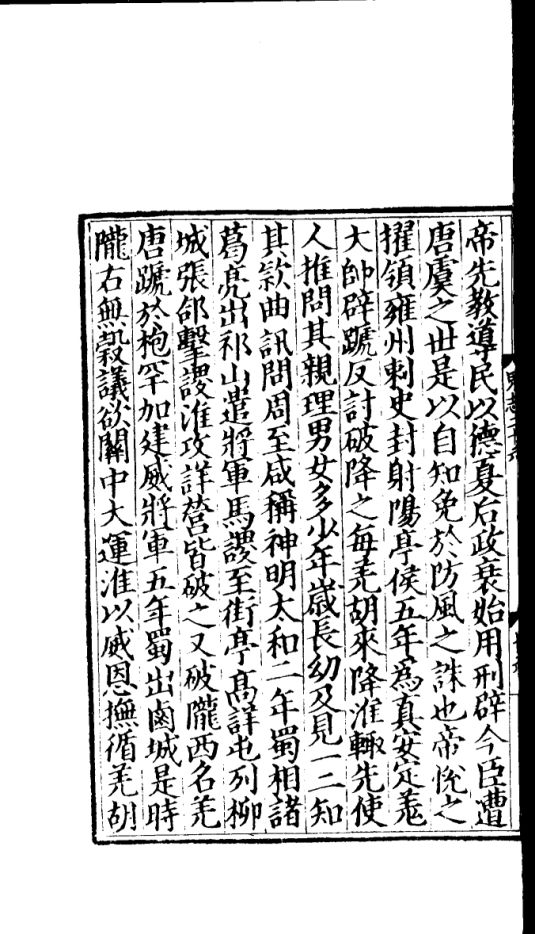 帝先教導民以德夏后政衰始用刑辟今臣遭
唐虞之世是以自知免於防風之誅也帝悅之
擢領雍州刺史封射陽亭侯五年為真安定羗
大帥辟蹏反討破降之每羗胡來降淮輙先使
人推問其親理男女多少年歲長幼及見一二知
其欵曲訊問周至咸稱神明太和二年蜀相諸
葛亮出祁山遣將軍馬謖至街亭髙詳屯列栁
城張郃擊謖淮攻詳營皆破之又破隴西名羗
唐蹏於枹罕加建威將軍五年蜀出鹵城是時
隴右無糓議欲關中大運淮以威恩撫循羗胡